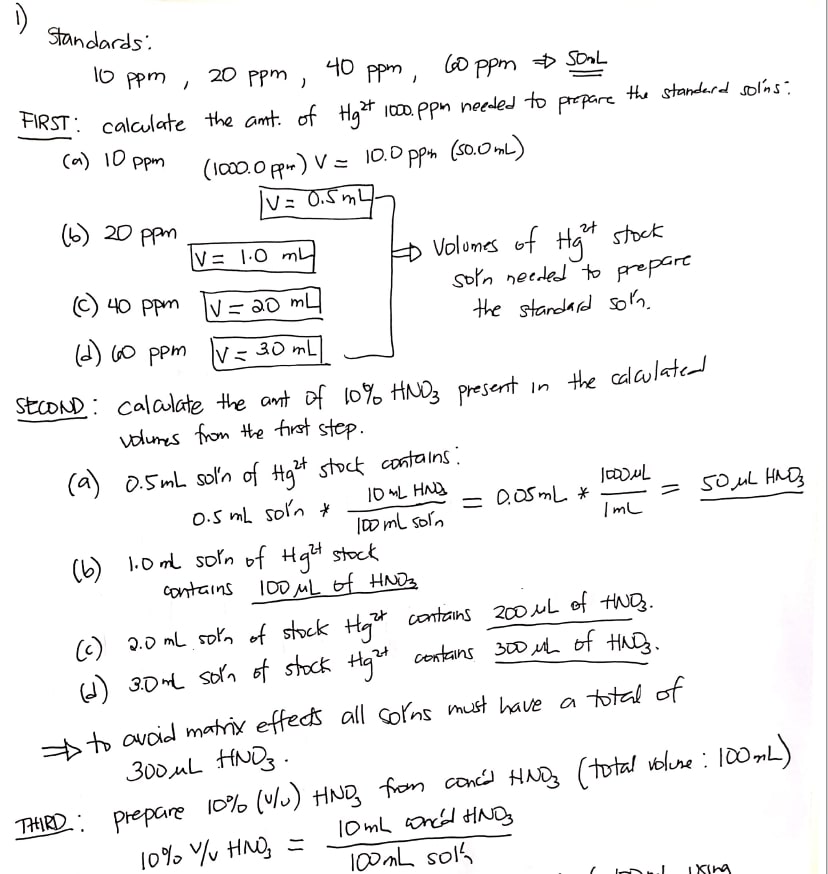 1)
Standards:
10 ppm , 20 ppm , 40 ppm , 60 ppm ⇒ 50mL
FIRST: calculate the amt. of Hg²⁺ 1000. ppm needed to prepare the standard sol'ns:
(a) 10 ppm (1000.0 ppm) V = 10.0 ppm (50.0 mL)
V = 0.5 mL
(b) 20 ppm
V = 1.0 mL
⇒ Volumes of Hg²⁺ stock
sol'n needed to prepare
the standard sol'n.
(c) 40 ppm V = 2.0 mL
(d) 60 ppm V = 3.0 mL
SECOND: calculate the amt of 10% HNO₃ present in the calculated
volumes from the first step.
(a) 0.5mL sol'n of Hg²⁺ stock contains:
0.5 mL sol'n * 10 mL HNO₃ / 100 mL sol'n = 0.05 mL * 1000 µL / 1 mL = 50 µL HNO₃
(b) 1.0 mL sol'n of Hg²⁺ stock
contains 100 µL of HNO₃
(c) 2.0 mL sol'n of stock Hg²⁺ contains 200 µL of HNO₃.
(d) 3.0 mL sol'n of stock Hg²⁺ contains 300 µL of HNO₃.
⇒ to avoid matrix effects all sol'ns must have a total of
300 µL HNO₃.
THIRD: prepare 10% (v/v) HNO₃ from conc'd HNO₃ (total volume: 100 mL)
10% v/v HNO₃ = 10 mL conc'd HNO₃ / 100 mL sol'n
using